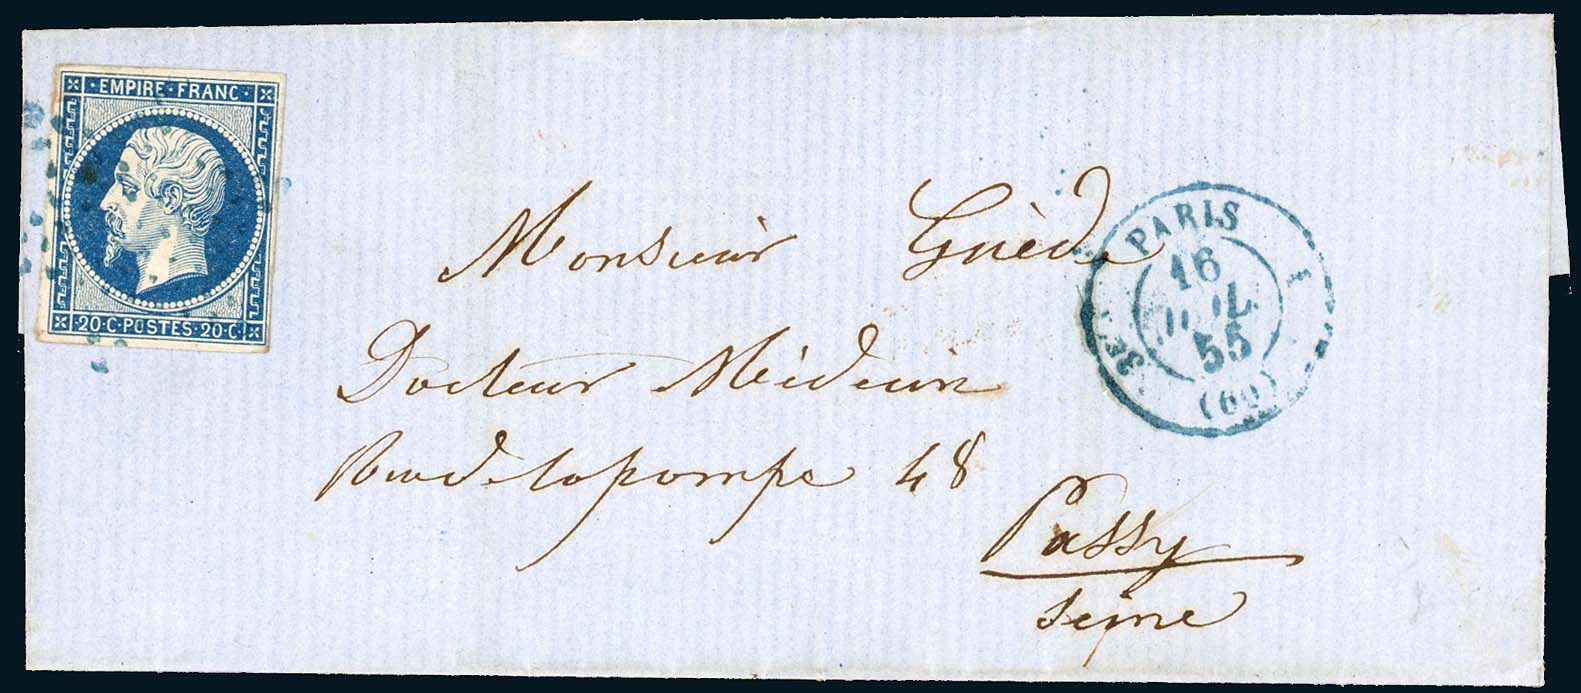 EMPIRE·FRANC·
20·C·POSTES·20·C·
Monsieur Guède
Docteur Médecin
Rue de la pompe 48
Passy
Seine
PARIS
16
JUIL.
55
(60)